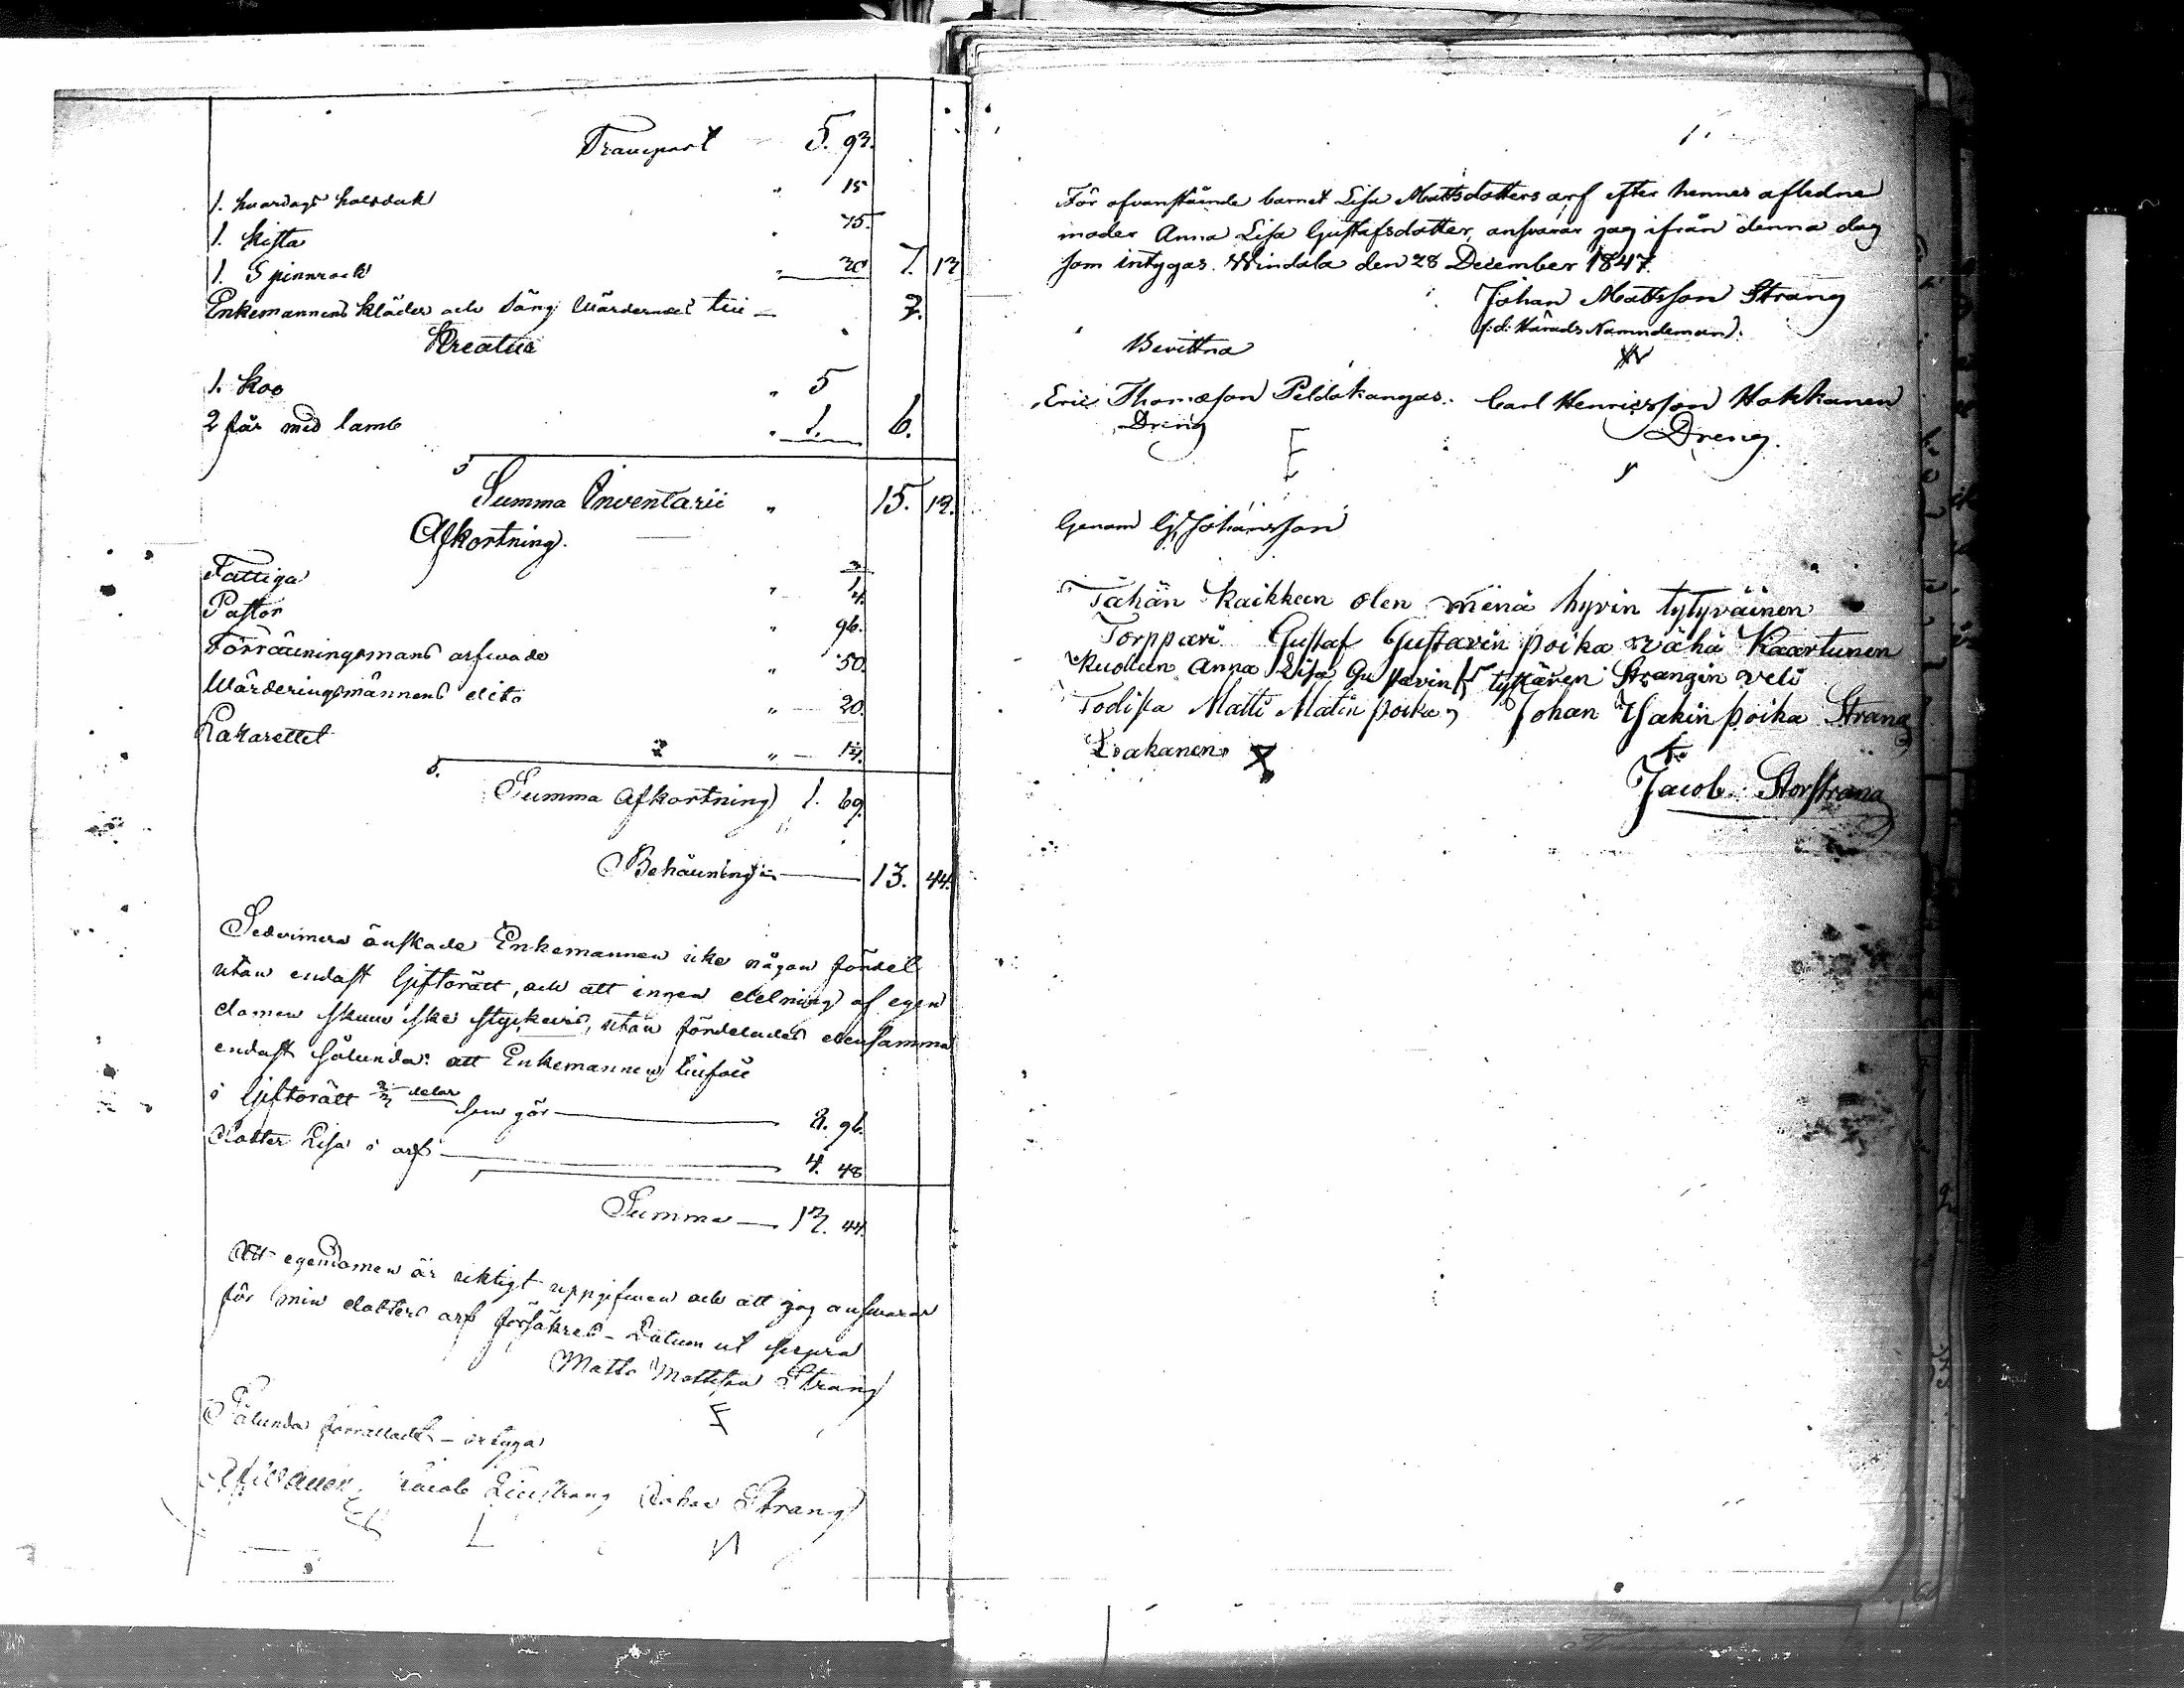 Transport 5. 93.
1. hvardags halsduk " 15
1. kista " 75.
1. Spinnrock " 30 7. 13
Enkemannens kläder och säng värderades till — 2.
Kreatur
1. Koo " 5
2 får med lamb " 1. 6.
Summa Inventarii " 15. 13.
Afkortning.
Fattiga "
Pastor " 96.
Förrättningsmans arfwode " 50
Wärderingsmännens dito " — 20.
Lazarettet " —
Summa Afkortning 1. 69.
Behållning — 13. 44.
Sedermera önskade Enkemannen icke någon fördel
utan endast Giftorätt, och att ingen delning af egen
domen skulle ske styckevis, utan fördelades densamma
endast sålunda: att Enkemannen tillföll
i Giftorätt 2/3 delar som gör — 8. 96.
Dotter Lisa i arf — 4. 48
Summa — 13. 44.
Att egendomen är riktigt uppgifwen och att jag answarar
för min dotters arf försäkras — Datum ut supra
Matts Mattsson Strang
Sålunda förrättadt — intyga
Jacob Lillstrang Johan Strang
1.
För ofvanstående barnet Lisa Mattsdotters arf efter hennes aflidne
moder Anna Lisa Gustafsdotter, ansvarar jag ifrån denna dag
som intygas. Windala den 28 December 1847.
Johan Mattsson Strang
(f:d: Härads Namndeman).
Bevittna
Eric Thomasson Peldokangas. Carl Henricsson Hokkanen
Dräng Dreng.
Genom G. Johansson
Tähän kaikkeen olen minä hyvin tytyväinen
Torppari Gustaf Gustavin poika vähä Kaartunen
Kuollen Anna Lisa Gustavin tyttären Strangin veli
Todista Matti Matin poika Johan Jsakin poika Strang
Lsakanen
Jacob Storstrang